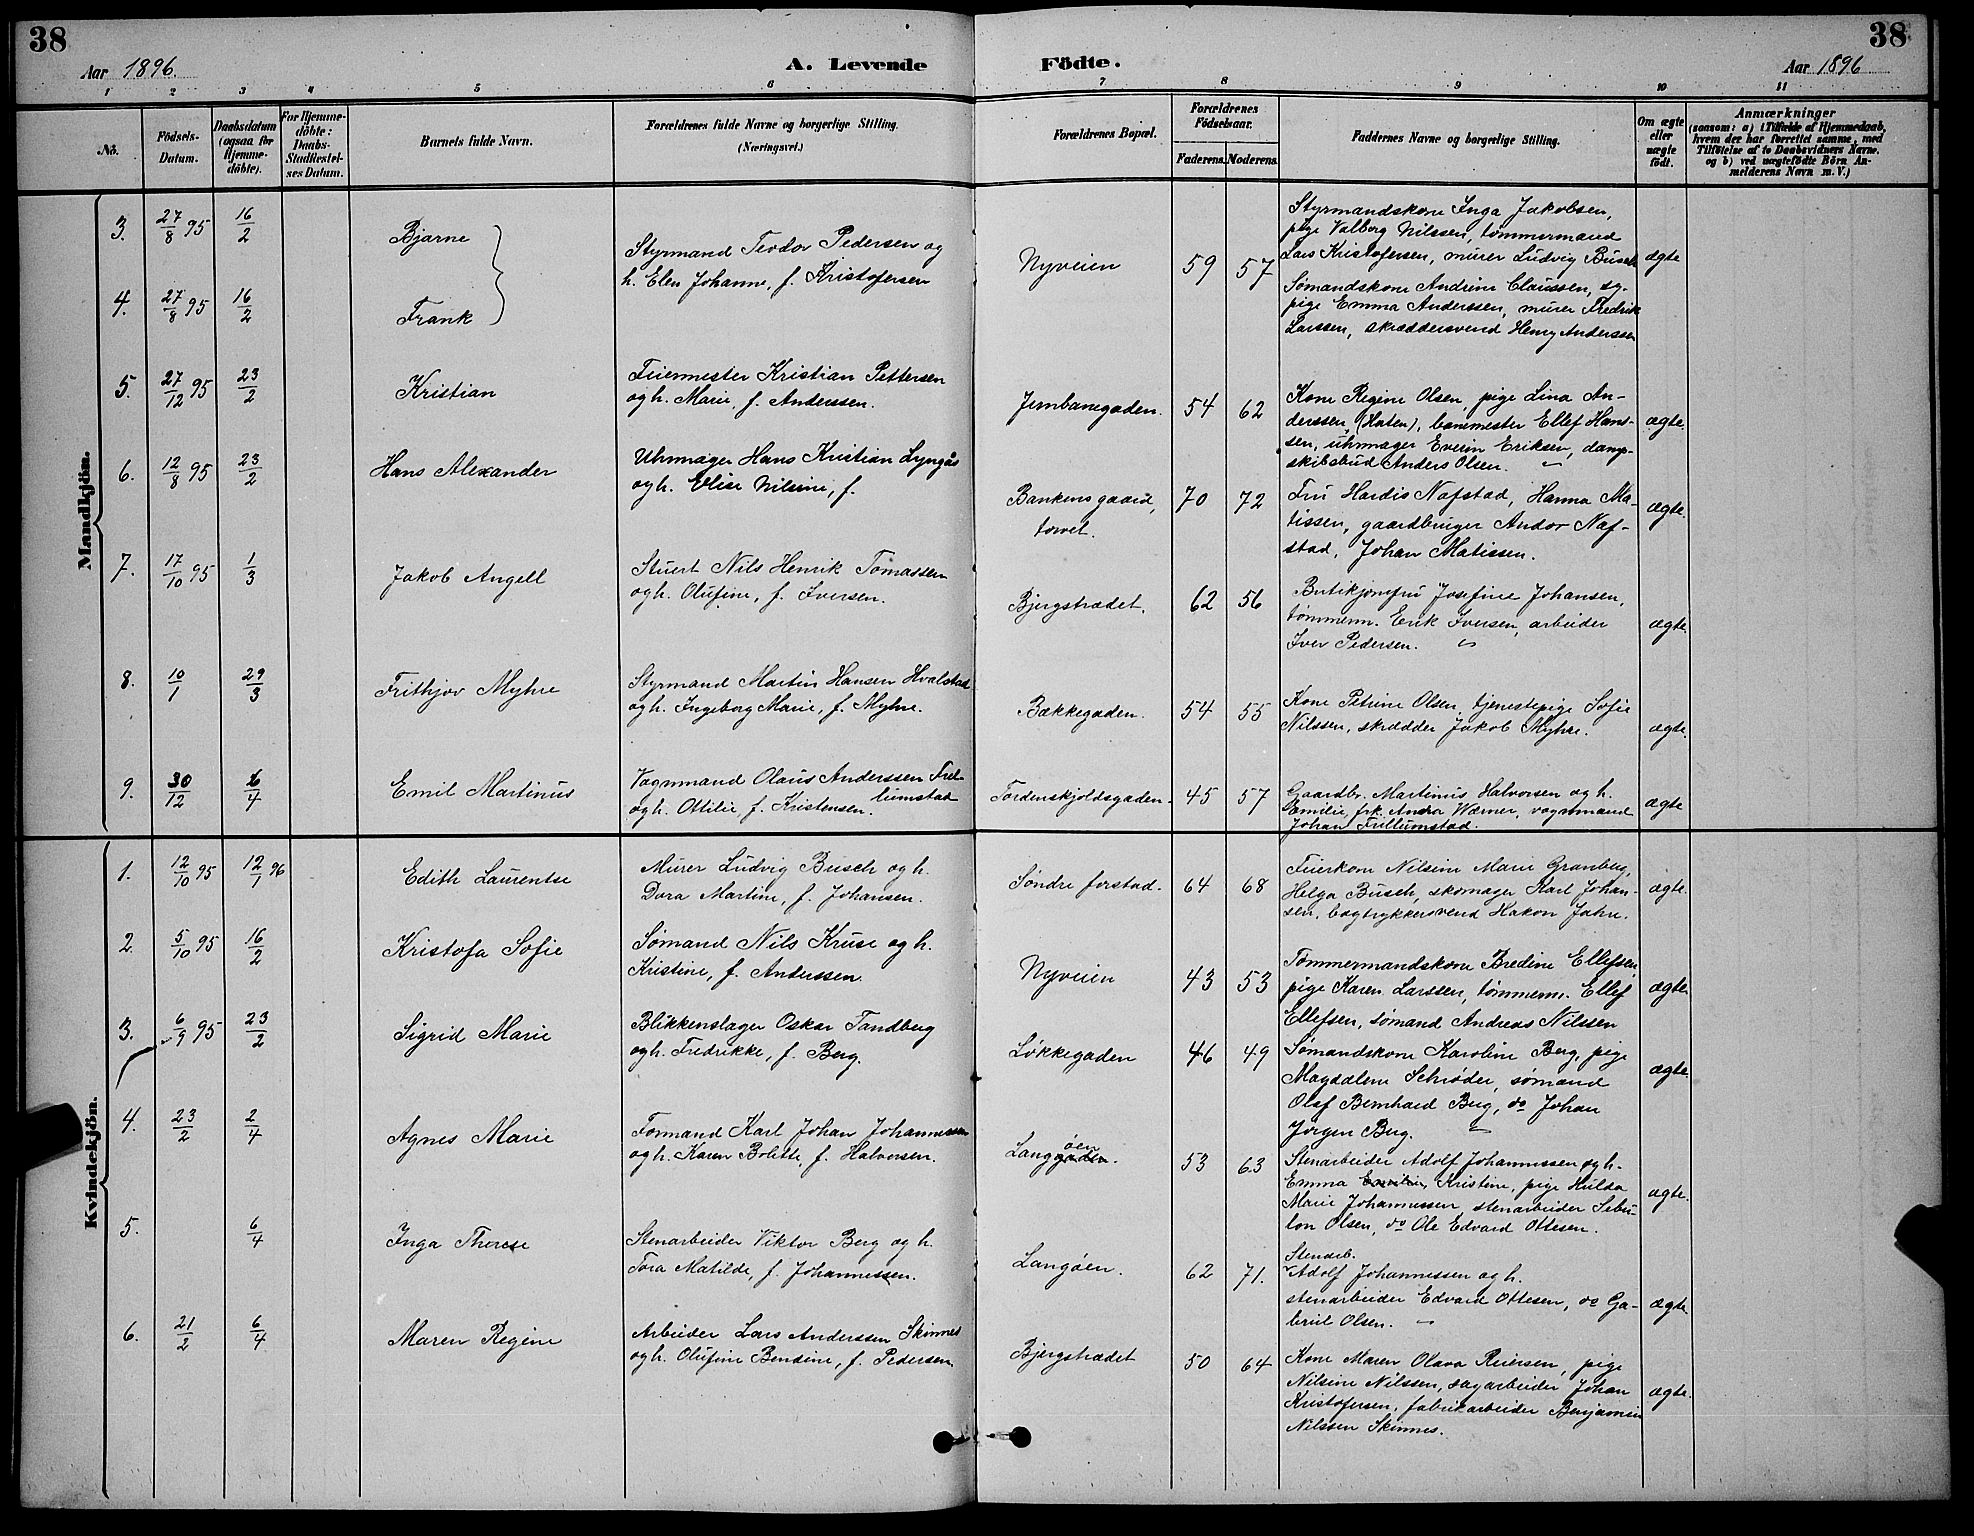 38
38
Aar 1896.
A. Levende Födte.
Aar 1896
1 2 3 4 5 6 7 8 9 10 11
No.
Födsels-Datum.
Daabsdatum (ogsaa for Hjemmedöbte).
For Hjemmedöbte: Daabs-Stadfæstelses Datum.
Barnets fulde Navn.
Forældrenes fulde Navne og borgerlige Stilling. (Næringsvei.)
Forældrenes Bopæl.
Forældrenes Födselsaar.
Faderens. Moderens.
Faddernes Navne og borgerlige Stilling.
Om ægte eller uægte födt.
Anmærkninger
(saasom: a) i Tilfælde af Hjemmedaab, hvem der har forrettet samme, med Tilföielse af to Daabsvidners Navne, og b) ved uægtefödte Börn Anmelderens Navn m. V.)
Mandkjön.
3. 27/8 95 16/2 Bjarne
4. 27/8 95 16/2 Frank
Styrmand Teodor Pedersen og
h. Elen Johanne, f. Kristofersen
Nyveien 59 57
Styrmandskone Inga Jakobsen,
pige Valborg Nilssen, tømmermand
Lars Kristofersen, murer Ludvig Busch
Sømandskone Andrine Claussen, sy-
pige Emma Anderssen, murer Fredrik
Larssen, skræddersvend Henry Anderssen
ægte
5. 27/12 95 23/2 Kristian
Feiermester Kristian Pettersen
og h. Marie, f. Anderssen.
Jernbanegaden. 54 62
Kone Regine Olsen, pige Lina An-
derssen, (Haten), banemester Ellef Hans-
sen, uhrmager Evein Eriksen, damp-
skibsbud Anders Olsen.
ægte.
6. 12/8 95 23/2 Hans Alexander
Uhrmager Hans Kristian Lyngås
og h. Elise Nilsine, f.
Bankens gaard,
torvet.
70 72
Fru Hardis Nafstad, Hanna Ma-
tissen, gaardbruger Andor Naf-
stad, Johan Matissen.
ægte.
7. 17/10 95 1/3 Jakob Angell
Stuert Nils Henrik Tomassen
og h. Olufine, f. Iversen.
Bjergstrædet. 62 56
Butikjomfru Josefine Johansen,
tømmerm. Erik Iversen, arbeider
Iver Pedersen.
ægte.
8. 10/1 29/3 Frithjov Myhre
Styrmand Martin Hansen Hvalstad
og h. Ingeborg Marie, f. Myhre.
Bækkegaden. 54 55
Kone Petrine Olsen, tjenestepige Sofie
Nilssen, skrædder Jakob Myhre.
ægte.
9. 30/12 6/4 Emil Martinus
Vognmand Olaus Anderssen Fril-
lumstad
og h. Ottilie, f. Kristensen
Tordenskjoldsgaden. 45 57
Gaardbr. Martinus Halvorsen og h.
Emilie, frk. Andra Wærner, vognmand
Johan Frillumstad.
ægte
Kvindekjön.
1. 12/10 95 12/1 96 Edith Laurentse
Murer Ludvig Busch og h.
Dora Martine, f. Johansen.
Søndre forstad. 64 68
Feierkone Nilsine Marie Granberg,
Helga Busch, skomager Karl Johan-
sen, bogtrykkersvend Hakon Jahre.
ægte.
2. 5/10 95 16/2 Kristofa Sofie
Sømand Nils Kruse og h.
Kristine, f. Anderssen.
Nyveien 43 53
Tømmermandskone Bredine Ellefsen,
pige Karen Larssen, tømmerm. Ellef
Ellefsen, sømand Andreas Nilssen
ægte.
3. 6/9 95 23/2 Sigrid Marie
Blikkenslager Oskar Tandberg
og h. Fredrikke, f. Berg.
Løkkegaden 46 49
Sømandskone Karoline Berg, pige
Magdalene Schrøder, sømand
Olaf Bernhard Berg, do Johan
Jørgen Berg.
ægte.
4. 23/2 2/4 Agnes Marie
Formand Karl Johan Johannessen
og h. Karen Bolette, f. Halvorsen.
Langøen. 53 63
Stenarbeider Adolf Johannessen og h.
Emma Kristine, pige Hulda
Marie Johannessen, stenarbeider Sebu-
lon Olsen, do Ole Edvard Ottesen.
ægte.
5. 6/4 Inga Therese
Stenarbeider Viktor Berg og h.
Tora Matilde, f. Johannessen.
Langøen. 62 71.
Stenarb.
Adolf Johannessen og h.
stenarbeider Edvard Ottesen, do Ga-
briel Olsen.
ægte.
6. 21/2 6/4 Maren Regine
Arbeider Lars Anderssen Skinnes
og h. Olufine Bendine, f. Pedersen.
Bjergstrædet 50 64
Kone Maren Olava Reiersen, pige
Nilsine Nilssen, sagarbeider Johan
Kristofersen, fabrikarbeider Benjamin
Nilssen Skinnes.
ægte.